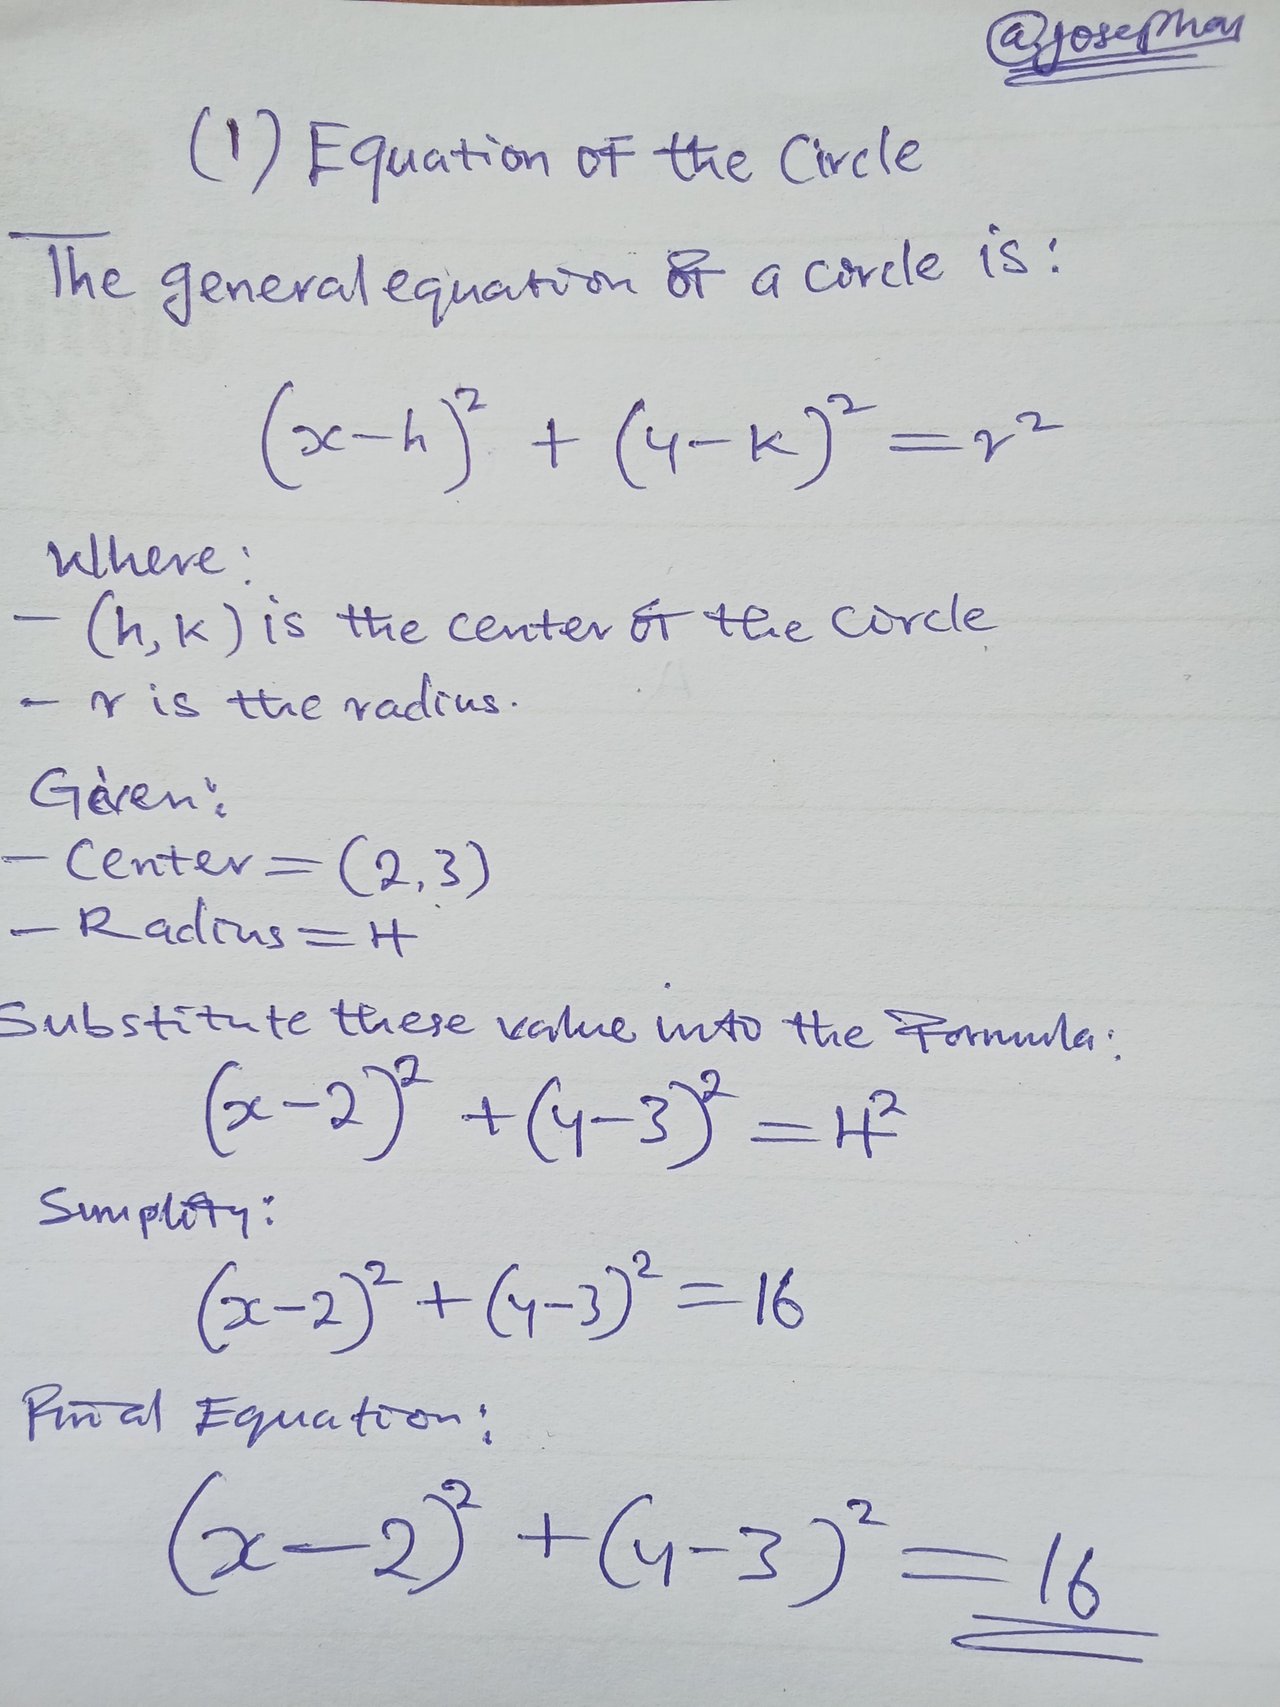 @josephas
(1) Equation of the Circle
The general equation of a circle is:
(x-h)² + (y-k)² = r²
Where:
- (h,k) is the center of the circle
- r is the radius.
Given:
- Center = (2,3)
- Radius = 4
Substitute these value into the Formula:
(x-2)² + (y-3)² = 4²
Simplify:
(x-2)² + (y-3)² = 16
Final Equation:
(x-2)² + (y-3)² = 16